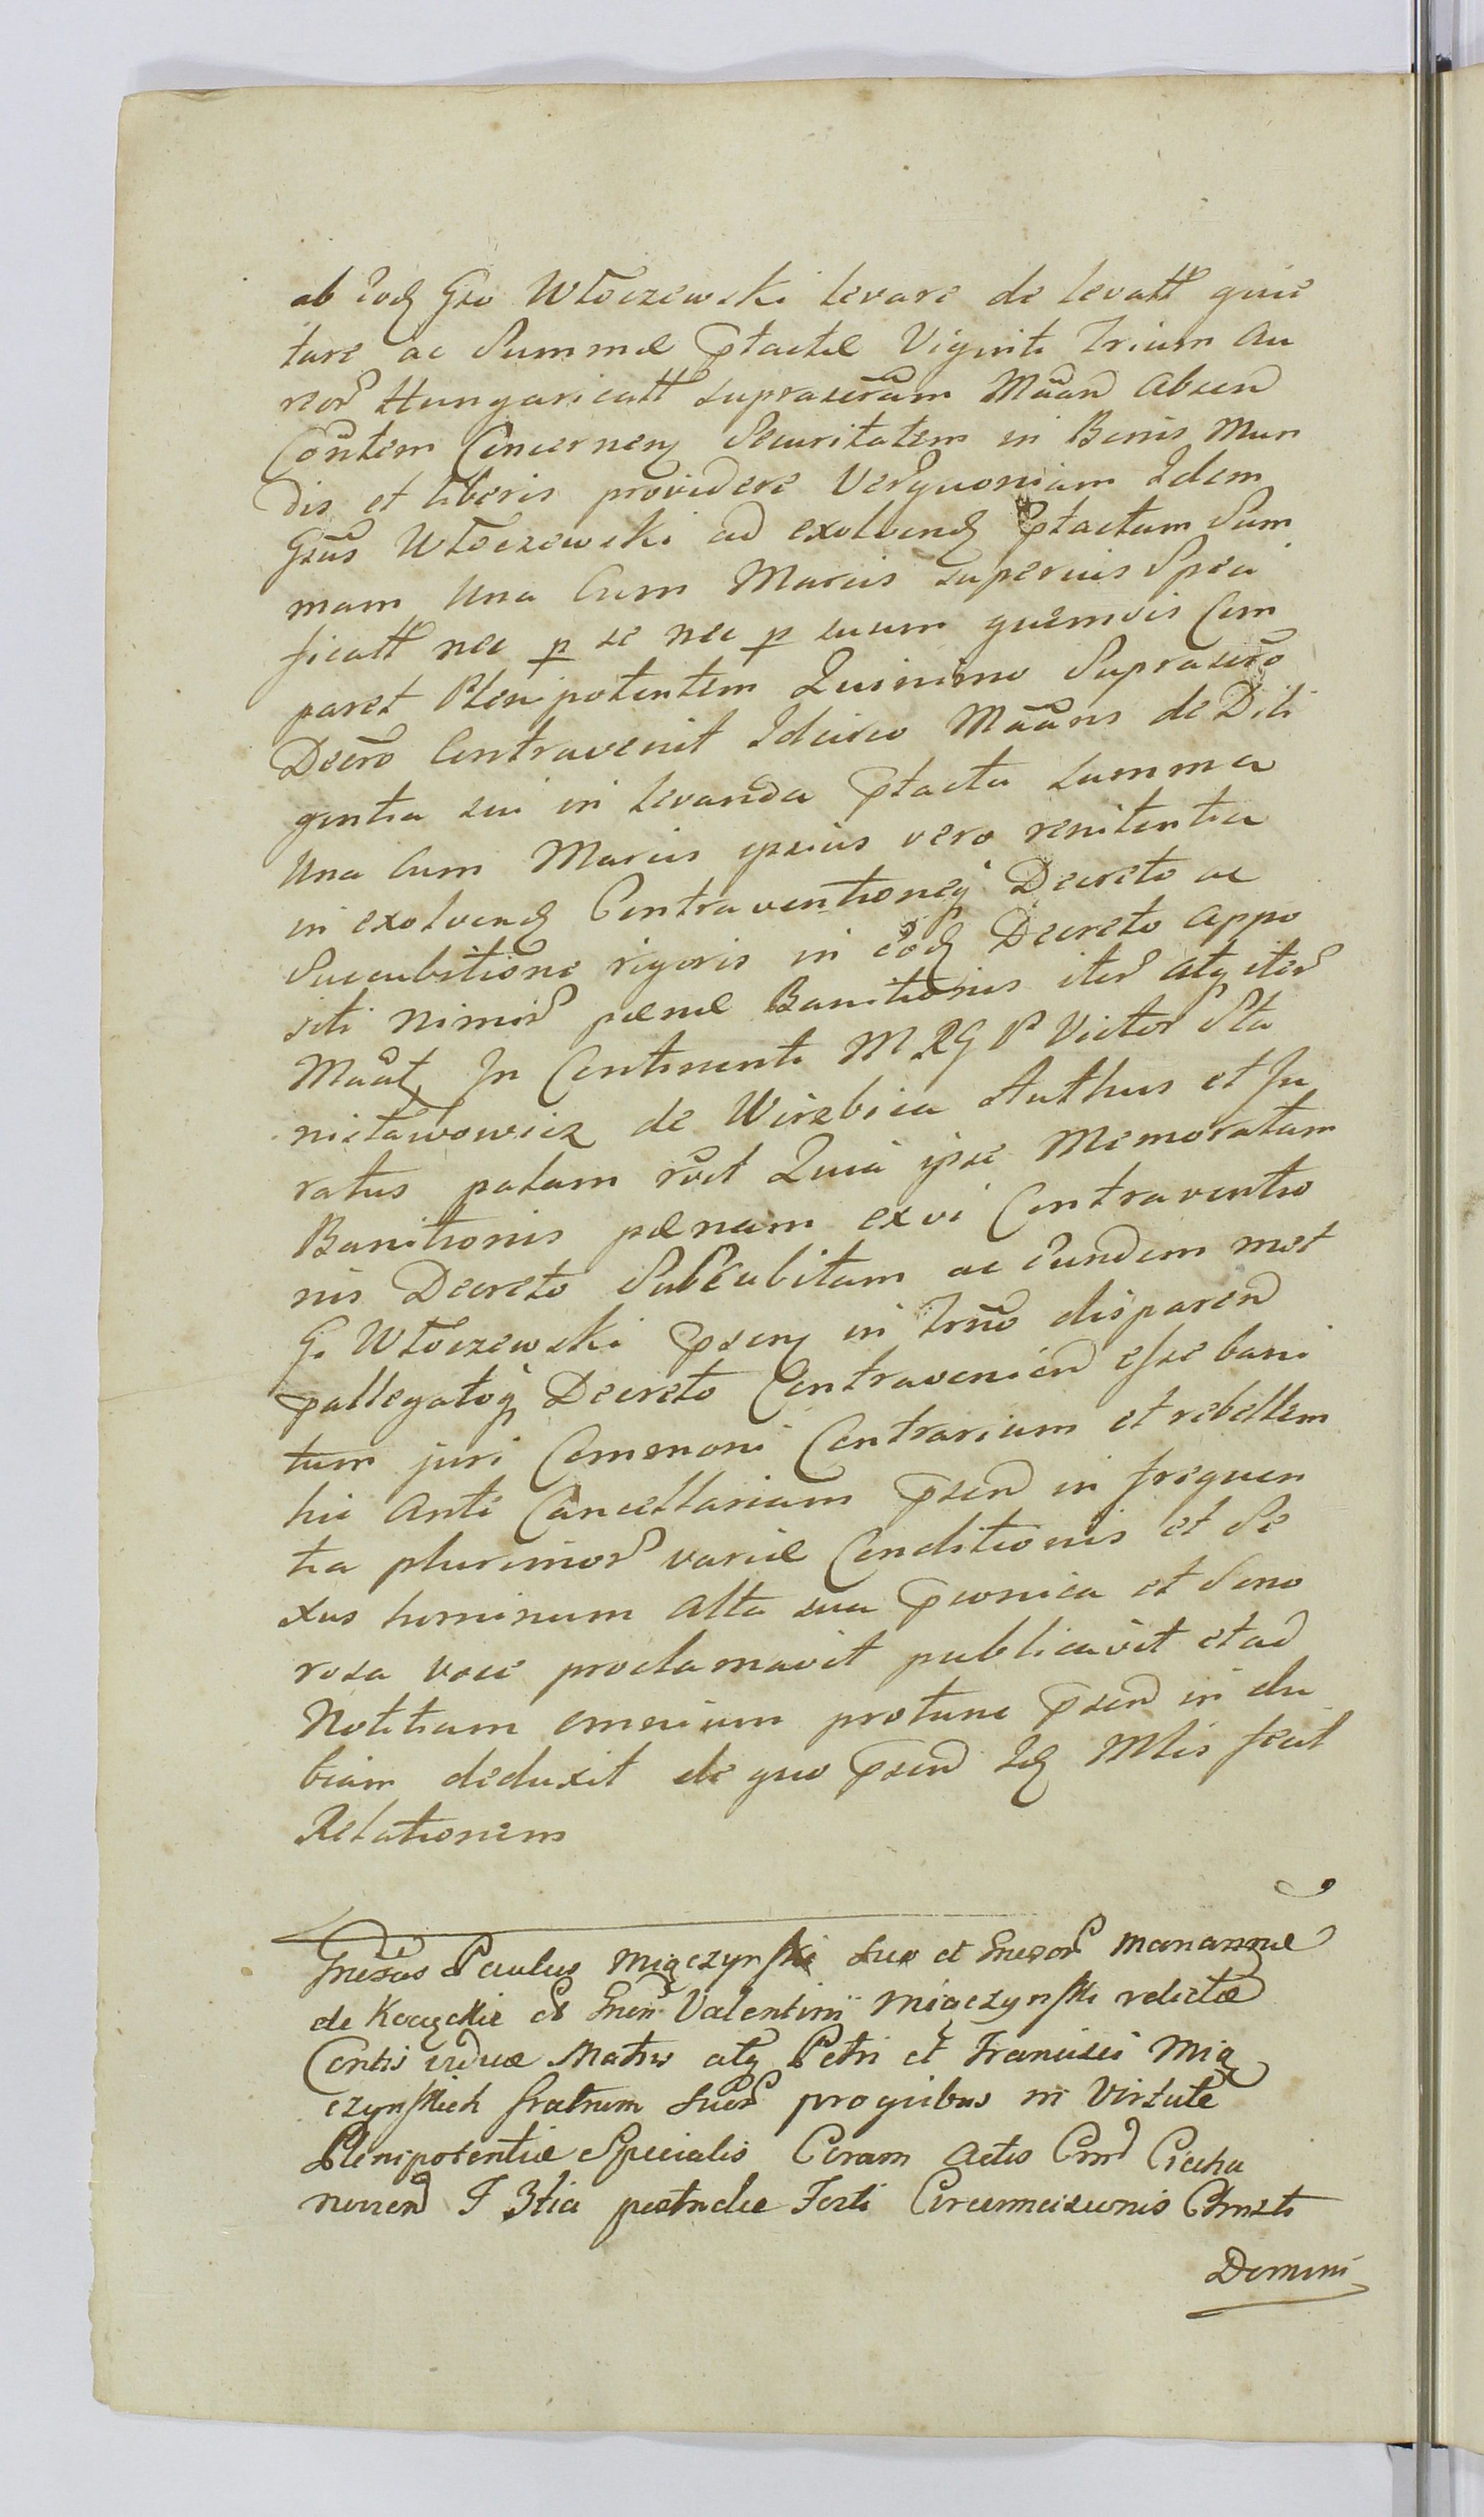 ab eodꝫ Gso Włoczewski levare de levatt quie
tare ac Summæ ptactæ Viginti Trium Au
reor Hungaricatt suprascram Mãan absen
Cõntem Concernenꝫ Securitatem in Bonis Mun
dis et liberis providere Verquoniam Idem
Gsus Włoczewski ad exolvendꝫ ptactum Sum
mam Una Cum Marcis superius Speci
ficatt nec p se nec p suum quemvis Com
paret Plenipotentem Quinimo Suprascro
Decro Contravenit Idcirco Mãans de Dili
gentia sui in levanda ptacta summa
Una Cum Marcis ipsius vero renitentia
in exolvendꝫ Contraventioneqꝫ Decreto ac
Succubitione rigoris in eodꝫ Decreto appo
siti nimir pænæ Banitionis iter atqꝫ iter
Mãat, In Continenti M RG P Victor Sta
nisławowicz de Wirzbica Authus et Ju
ratus palam rõct Quia ipse Memoratam
Banitionis pænam ex vi Contraventio
nis Decreto Subcubitam ac Eundem met
G. Włoczewski psenꝫ in Trno disparen
pallegatoqꝫ Decreto Contravenien esse bani
tum juri Commoni Contrarium et rebellem
hic Ante Cancellariam psen in frequen
tia plurimor variæ Conditionis et Se
xus hominum Alta sua pconica et Sono
rosa voce proclamavit publicavit et ad
Notitiam omnium protunc psen in du
biam deduxit de quo psen Idꝫ Mlis fecit
Relationem
Gnesus Paulus Miączynski suo et Gnesor Mariannæ
de Koczekie et Gnen Valentini Miączynski relictæ
Contis viduæ Matris atqꝫ Petri et Francisci Mią
czynskich fratrum Suor pro quibus in Virtute
Plenipotentiæ Specialis Coram Actis Cmd Ciecha
novien F 3tia postridie Festi Circumcisionis Christi
Domini